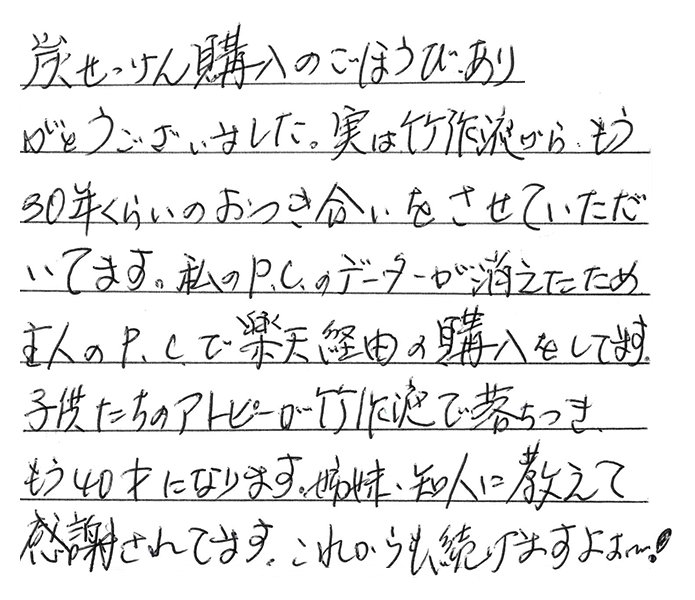 炭せっけん購入のごほうび、あり
がとうございました。実は竹作液から、もう
30年くらいのおつき合いをさせていただ
いてます。私のP.C.のデーターが消えたため
主人のP.C.で楽天経由の購入をしてます。
子供たちのアトピーが竹作液で落ちつき、
もう40才になります。姉妹、知人に教えて
感謝されてます。これからも、続けますよぉ〜!